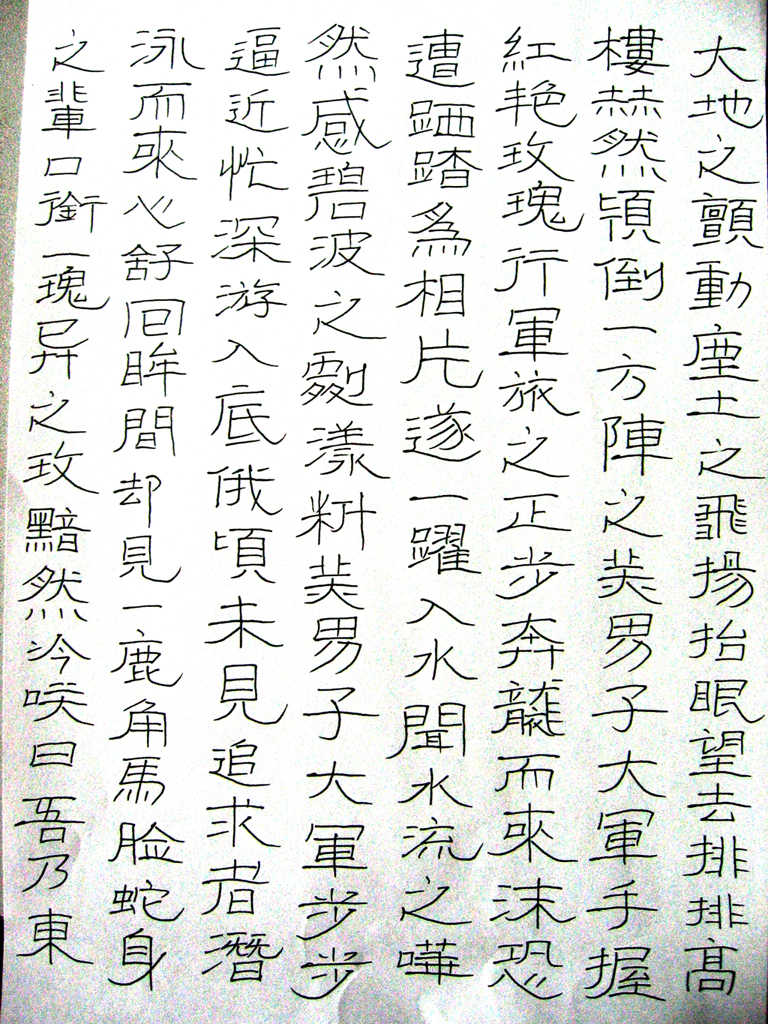 大地之顫動塵土之飛揚抬眼望去排排高
樓赫然頃倒一方陣之美男子大軍手握
紅艳玫瑰行軍旅之正步奔龍而來沫恐
遭跴踏為相片遂一躍入水聞水流之嘩
然感碧波之劇漾料美男子大軍步步
逼近忙深游入底俄頃未見追求者潛
泳而來心舒回眸間却見一鹿角馬脸蛇身
之輩口銜一瑰异之玫黯然冷唉曰吾乃東